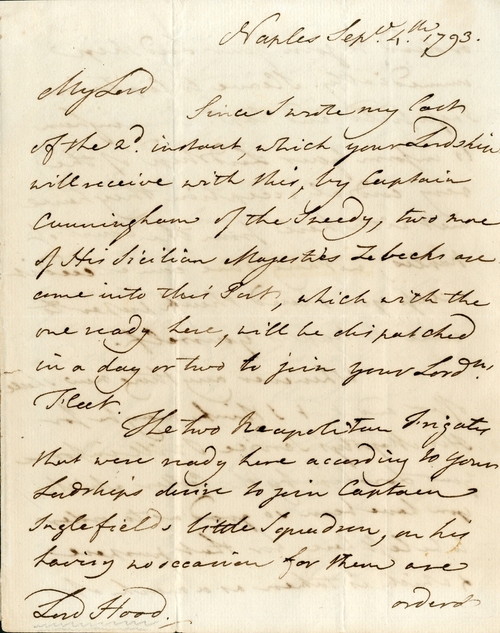 Naples Sepr. 4.th 1793.
My Lord
Since I wrote my last
of the 2d. instant, which your Lordship
will receive with this, by Captain
Cunningham of the Speedy, two more
of His Sicilian Majesties Zebecks are
come into this Port, which with the
one ready here, will be dispatched
in a day or two to join your Lordps.
Fleet.
The two Neapolitan Frigates
that were ready here according to your
Lordships desire to join Captain
Inglefields little Squadron, on his
having no occasion for them are
Lord Hood. orderd